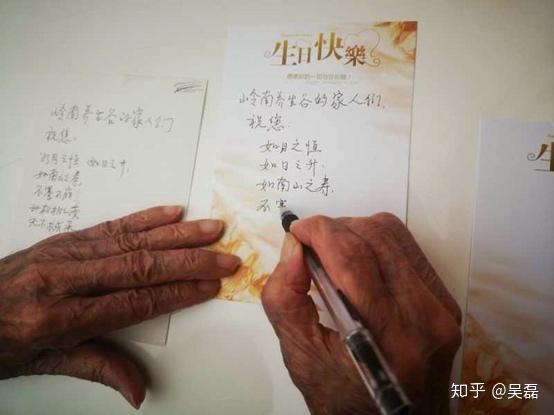 岭南养生谷的家人们
祝您:
如月之恒 如日之升,
如南山之寿,
不骞不崩
如松柏之茂
生日快樂
岭南养生谷的家人们,
祝您:
如月之恒
如日之升,
如南山之寿,
不
生
知乎 @吴磊